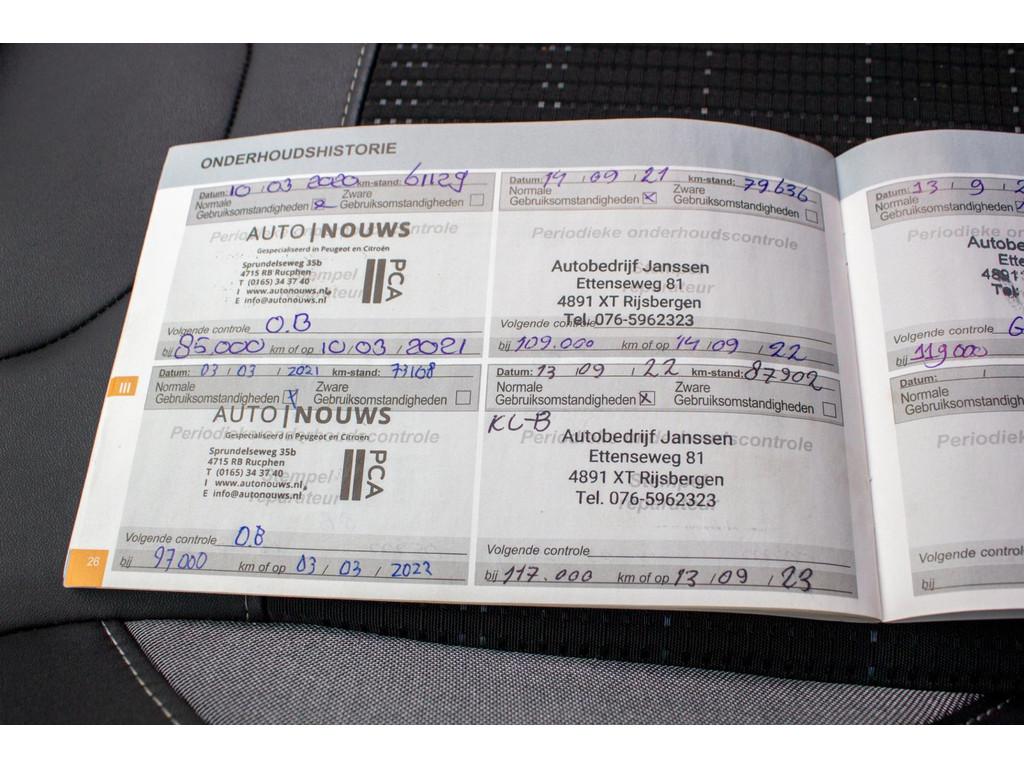 ONDERHOUDSHISTORIE
Datum: 10 / 03 2020 km-stand: 61129
Normale Zware
Gebruiksomstandigheden Gebruiksomstandigheden
Periodieke onderhoudscontrole
AUTO|NOUWS
Gespecialiseerd in Peugeot en Citroën
Sprundelseweg 35b
4715 RB Rucphen
T (0165) 34 37 40
I www.autonouws.nl
E info@autonouws.nl
PCA
Stempel
reparateur
Volgende controle O.B
bij 85.000 km of op 10 / 03 / 2021
Datum: 03 / 03 / 2021 km-stand: 73168
Normale Zware
Gebruiksomstandigheden X Gebruiksomstandigheden
AUTO|NOUWS
Gespecialiseerd in Peugeot en Citroën
Periodieke onderhoudscontrole
Sprundelseweg 35b
4715 RB Rucphen
T (0165) 34 37 40
I www.autonouws.nl
E info@autonouws.nl
PCA
Stempel
reparateur
Volgende controle O.B
bij 97000 km of op 03 / 03 / 2022
III
26
Datum: 14 / 09 / 21 km-stand: 79636
Normale Zware
Gebruiksomstandigheden X Gebruiksomstandigheden
Periodieke onderhoudscontrole
Autobedrijf Janssen
Ettenseweg 81
4891 XT Rijsbergen
Tel. 076-5962323
Volgende controle
bij 109.000 km of op 14 / 09 / 22
Datum: 13 / 09 / 22 km-stand: 87902
Normale Zware
Gebruiksomstandigheden X Gebruiksomstandigheden
KL-B
Periodieke onderhoudscontrole
Autobedrijf Janssen
Ettenseweg 81
4891 XT Rijsbergen
Tel. 076-5962323
Stempel
reparateur
Volgende controle
bij 117.000 km of op 13 / 09 / 23
Datum: 13 / 9 / 2
Normale
Gebruiksomstandigh
Periodiek
Autobe
4891
Tel.
Volgende controle G
bij 119.000
Datum: /
Normale
Gebruiksomstandigh
Periodiek
Volgende control
bij